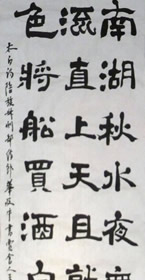 南湖秋水夜無
流直上天且就
色將船買酒白
太白詩陪族叔刑部侍郎華及中書賈舍人